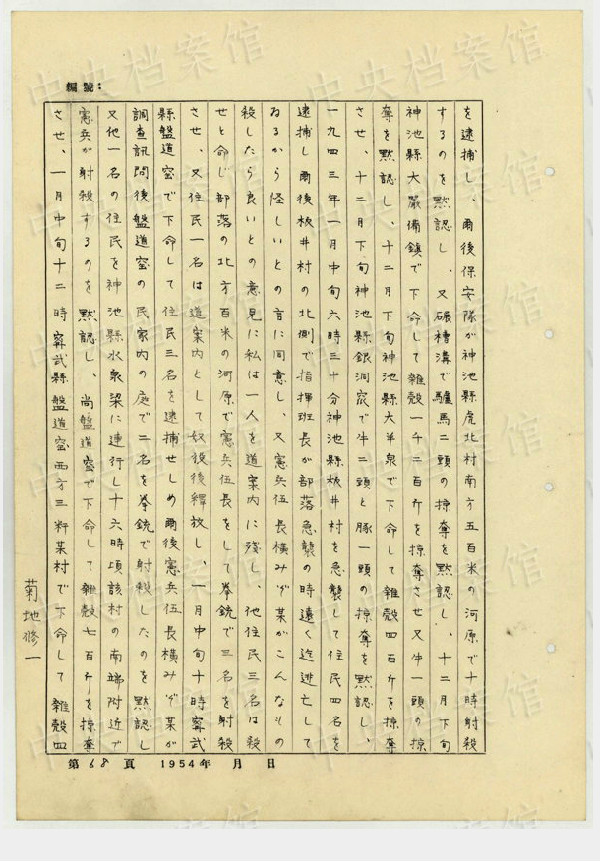 編號：
を逮捕し、爾後保安隊が神池縣虎北村南方五百米の河原で十時射殺
するのを黙認し、又碾槽溝で驢馬二頭の掠奪を黙認し、十二月下旬
神池縣大嚴備鎮で下命して雜穀一千二百斤を掠奪させ又牛一頭の掠
奪を黙認し、十二月下旬神池縣大羊泉で下命して雜穀四百斤を掠奪
させ、十二月下旬神池縣銀洞窊で牛二頭と豚一頭の掠奪を黙認し、
一九四三年一月中旬六時三十分神池縣板井村を急襲して住民四名を
逮捕し爾後板井村の北側で指揮班長が部落急襲の時遠く迄逃亡して
ゐるから怪しいとの言に同意し、又憲兵伍長橫みぞ某がこんなもの
殺したら良いとの意見に私は一人を道案内に殘し、他住民三名は殺
せと命じ部落の北方百米の河原で憲兵伍長をして拳銃で三名を射殺
させ、又住民一名は道案内として奴役後釋放し、一月中旬十時寗武
縣盤道窊で下命して住民三名を逮捕せしめ爾後憲兵伍長橫みぞ某が
調查訊問後盤道窊の民家内の庭で二名を拳銃で射殺したのを黙認し
又他一名の住民を神池縣水泉梁に連行し十六時頃該村の南端附近で
憲兵が射殺するのを黙認し、尚盤道窊で下命して雜穀七百斤を掠奪
させ、一月中旬十二時寗武縣盤道窊西方三粁某村で下命して雜穀四
菊地修一
第 68 頁 1954年 月 日
中央档案馆